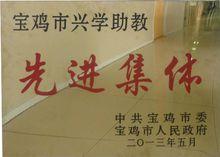 宝鸡市兴学助教
先进集体
中共宝鸡市委
宝鸡市人民政府
二〇一三年五月